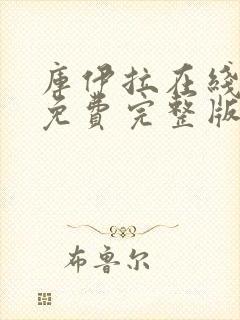 库伊拉在线
免费完整版
布鲁尔